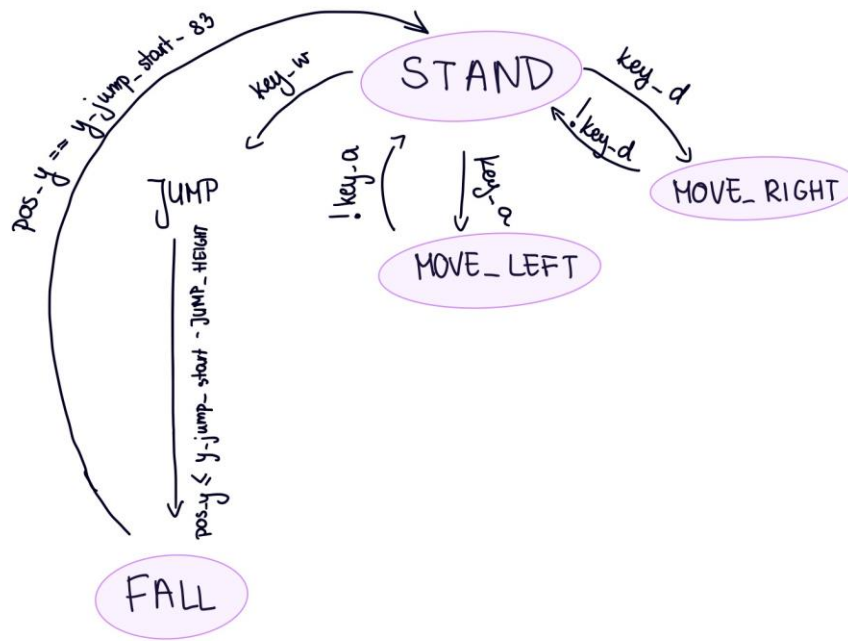 pos_y == y_jump_start_83
STAND
key_w
key_d
!key_d
JUMP
!key_a
key_a
MOVE_RIGHT
MOVE_LEFT
pos_y ≤ y_jump_start - JUMP_HEIGHT
FALL